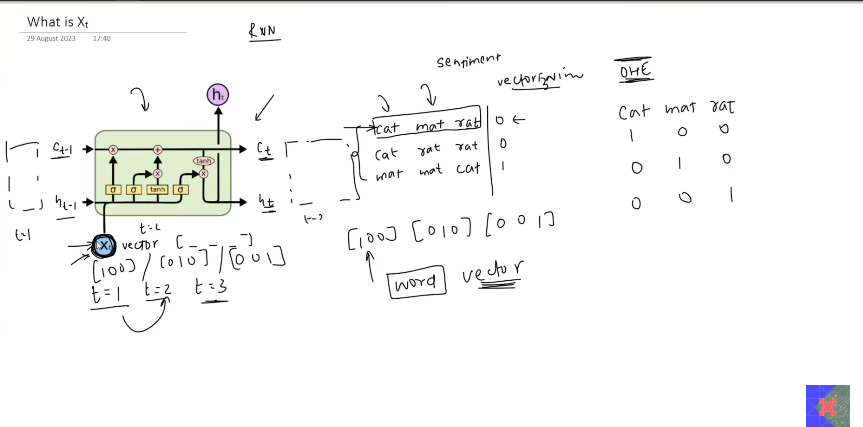 What is Xt
29 August 2023 17:40
RNN
ht
Ct-1
ht-1
t-1
x
+
tanh
x
x
σ
σ
tanh
σ
Ct
ht
t=2
Xt
vector [ _ _ _ ]
[100] / [010] / [001]
t=1 t=2 t=3
sentiment
vectorization
cat mat rat 0 ←
cat rat rat 0
mat mat cat 1
[100] [010] [001]
word vector
OHE
cat mat rat
1 0 0
0 1 0
0 0 1